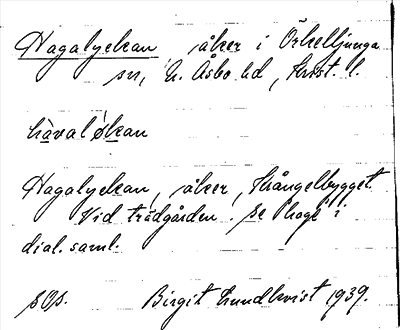 Hagalyckan åker i Örkelljunga
sn, N. Åsbo hd, Krist. l.
haval skan
Hagalyckan, åker, Skångelbygget.
Vid trädgården. Se "hage" i
dial. saml.
Birgit Lundkvist 1939.